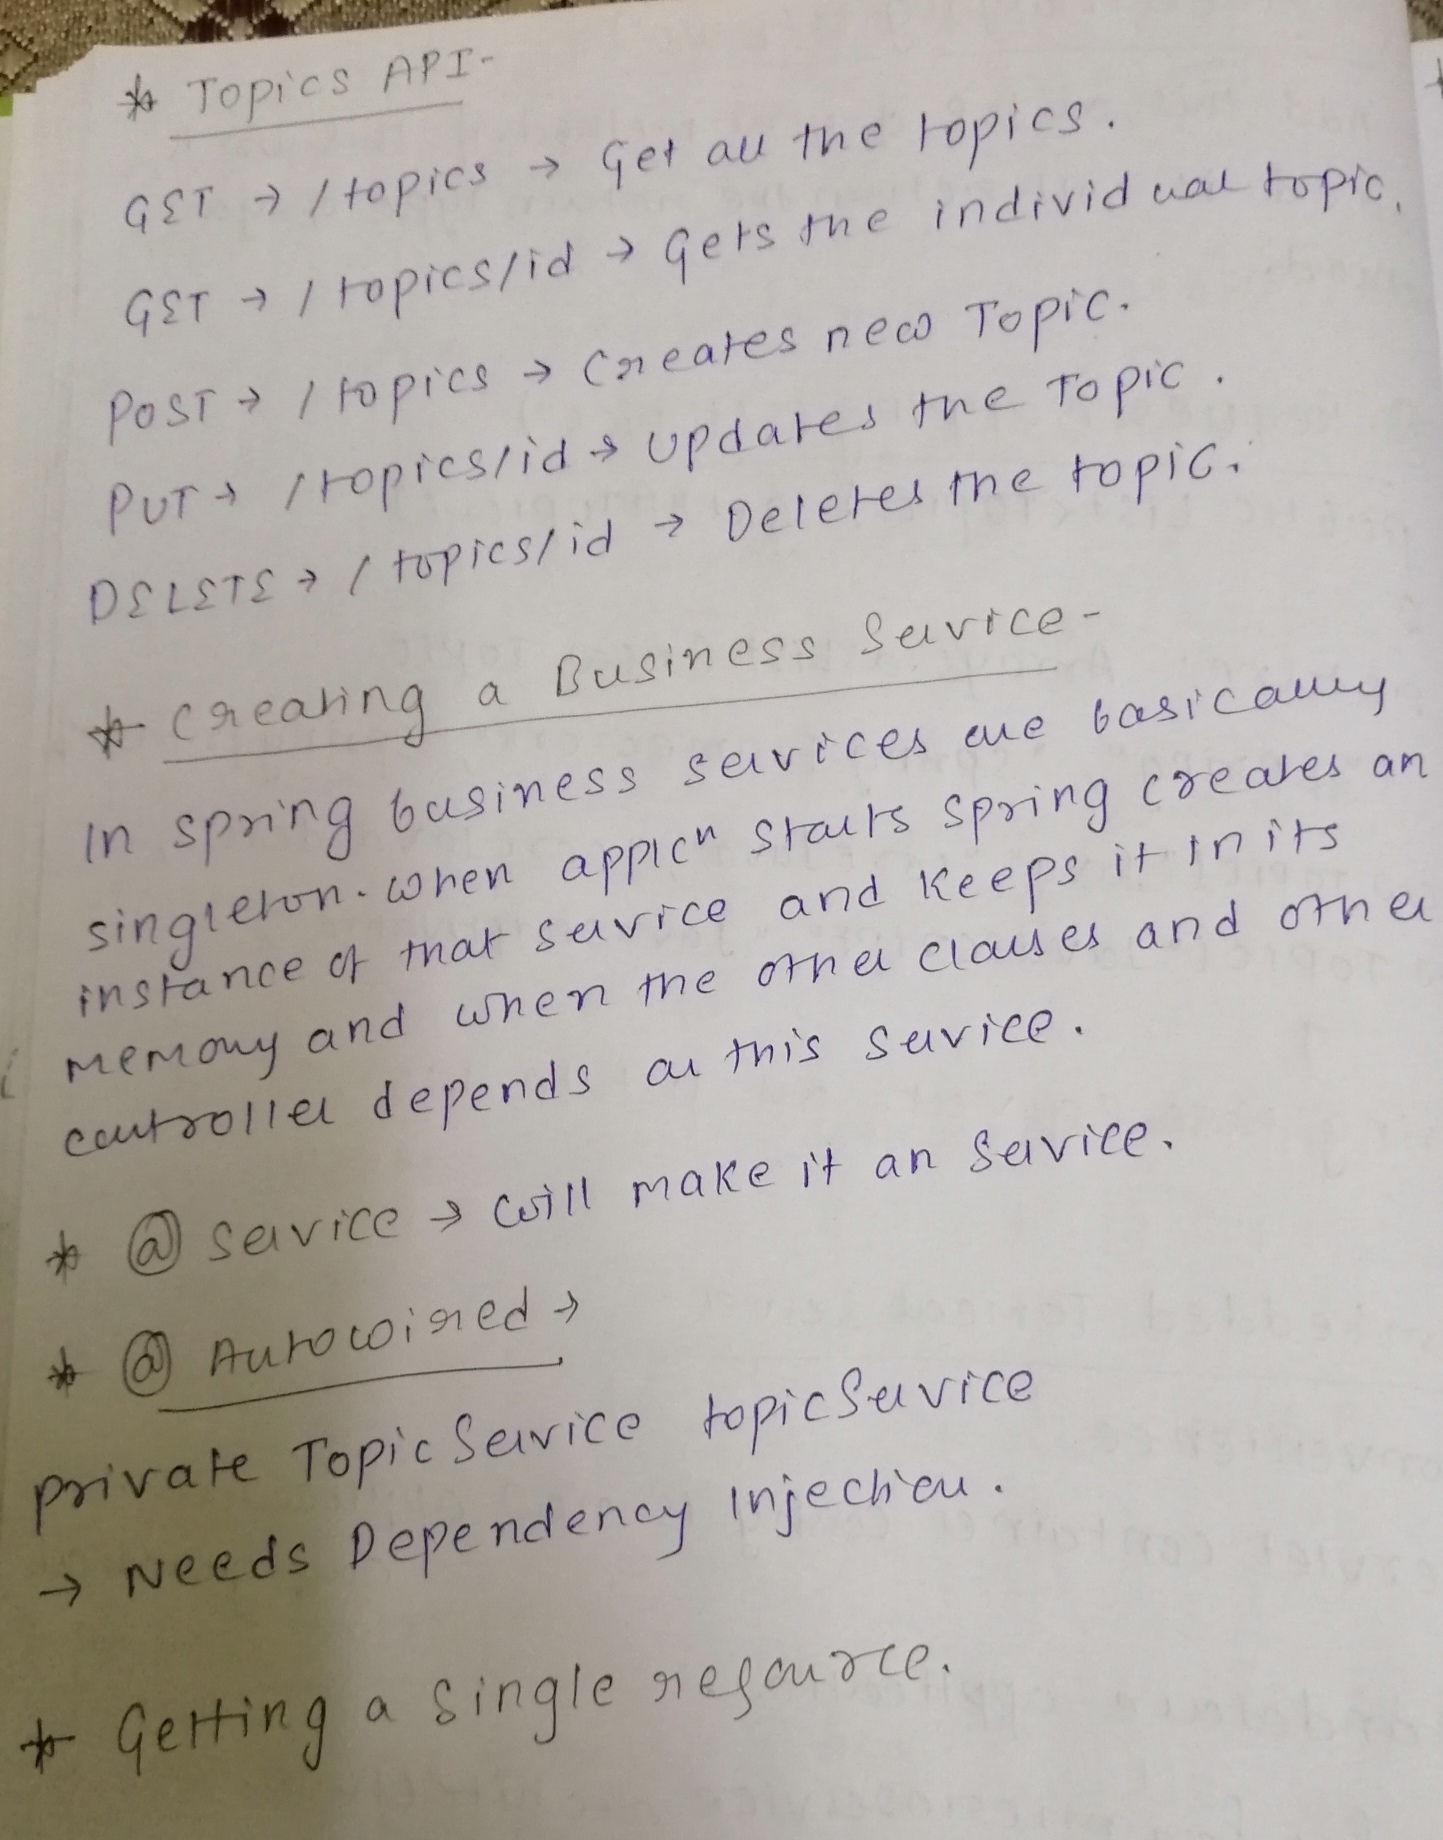 * Topics API-
GET → /topics → Get all the topics.
GET → /topics/id → Gets the individual topic.
POST → /topics → Creates new Topic.
PUT → /topics/id → Updates the Topic.
DELETE → /topics/id → Deletes the topic.
* Creating a Business Service-
In spring business services are basically
singleton. when applcⁿ starts spring creates an
instance of that service and keeps it in its
memory and when the other classes and other
controller depends on this service.
* @ Service → will make it an Service.
* @ Autowired →
private TopicService topicService
→ Needs Dependency Injection.
* Getting a Single resource.